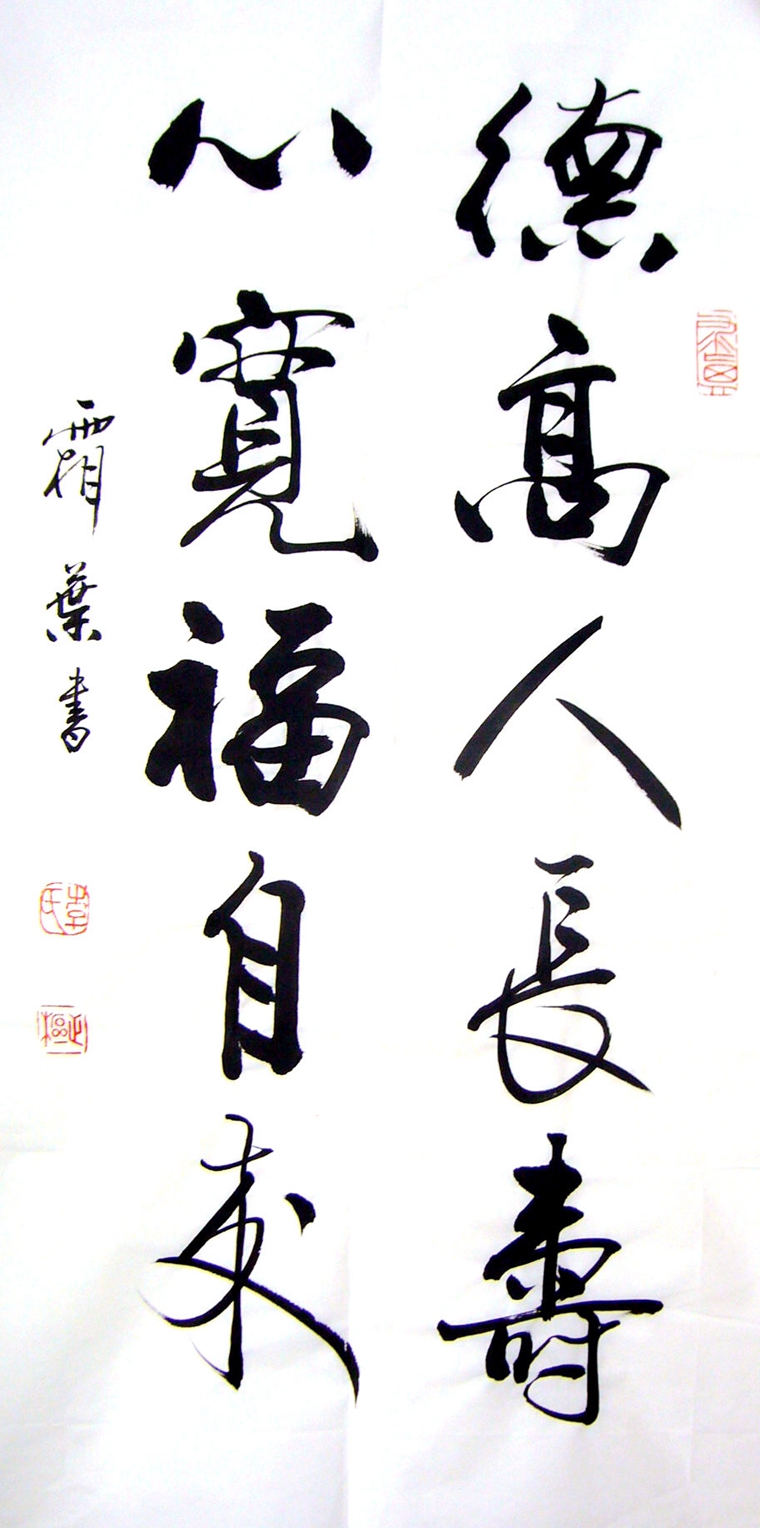 德高人長壽
心寬福自來
霜葉書
李氏